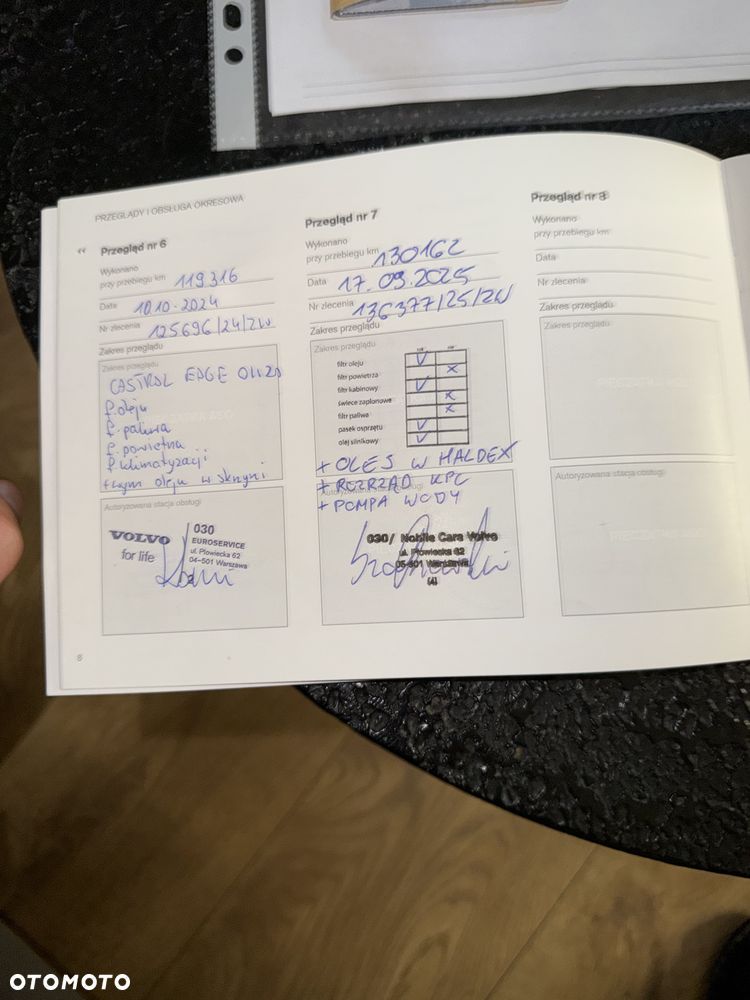 PRZEGLĄDY I OBSŁUGA OKRESOWA
Przegląd nr 6
Wykonano
przy przebiegu km 119316
Data 10 10. 2024
Nr zlecenia 125696/24/ZW
Zakres przeglądu
Zakres przeglądu
CASTROL EDGE 0W20
f. oleju
f. paliwa
f. powietrza
f. klimatyzacji
+ wym oleju w skrzyni
Autoryzowana stacja obsługi
VOLVO
for life
030
EUROSERVICE
ul. Płowiecka 62
04-501 Warszawa
Przegląd nr 7
Wykonano
przy przebiegu km 130162
Data 17. 09. 2025
Nr zlecenia 136377/25/ZW
Zakres przeglądu
Zakres przeglądu
filtr oleju V
filtr powietrza x
filtr kabinowy V
świece zapłonowe x
filtr paliwa x
pasek osprzętu V
olej silnikowy V
+ OLEJ W HALDEX
+ ROZRZĄD KPL
+ POMPA WODY
Autoryzowana stacja obsługi
030/ Nobile Cars Volvo
ul. Płowiecka 62
05-501 Warszawa
(4)
Przegląd nr 8
Wykonano
przy przebiegu km
Data
Nr zlecenia
Zakres przeglądu
Zakres przeglądu
Autoryzowana stacja obsługi
8
OTOMOTO